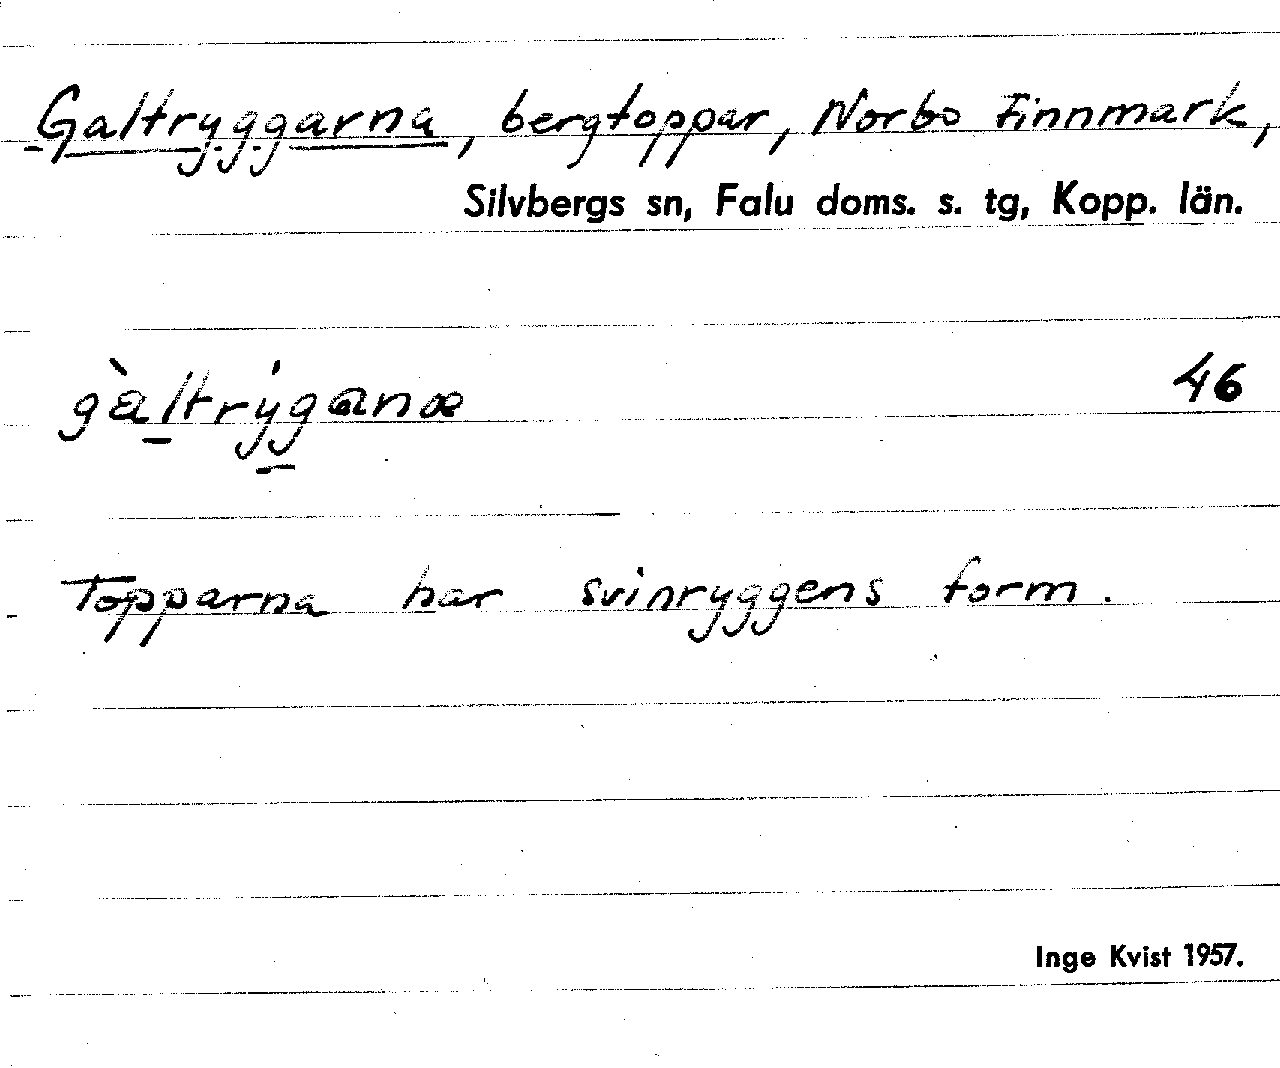 Galtryggarna, bergtoppar, Norbo Finnmark,
Silvbergs sn, Falu doms. s. tg, Kopp. län.
gàltrýganæ 46
Topparna har svinryggens form.
Inge Kvist 1957.